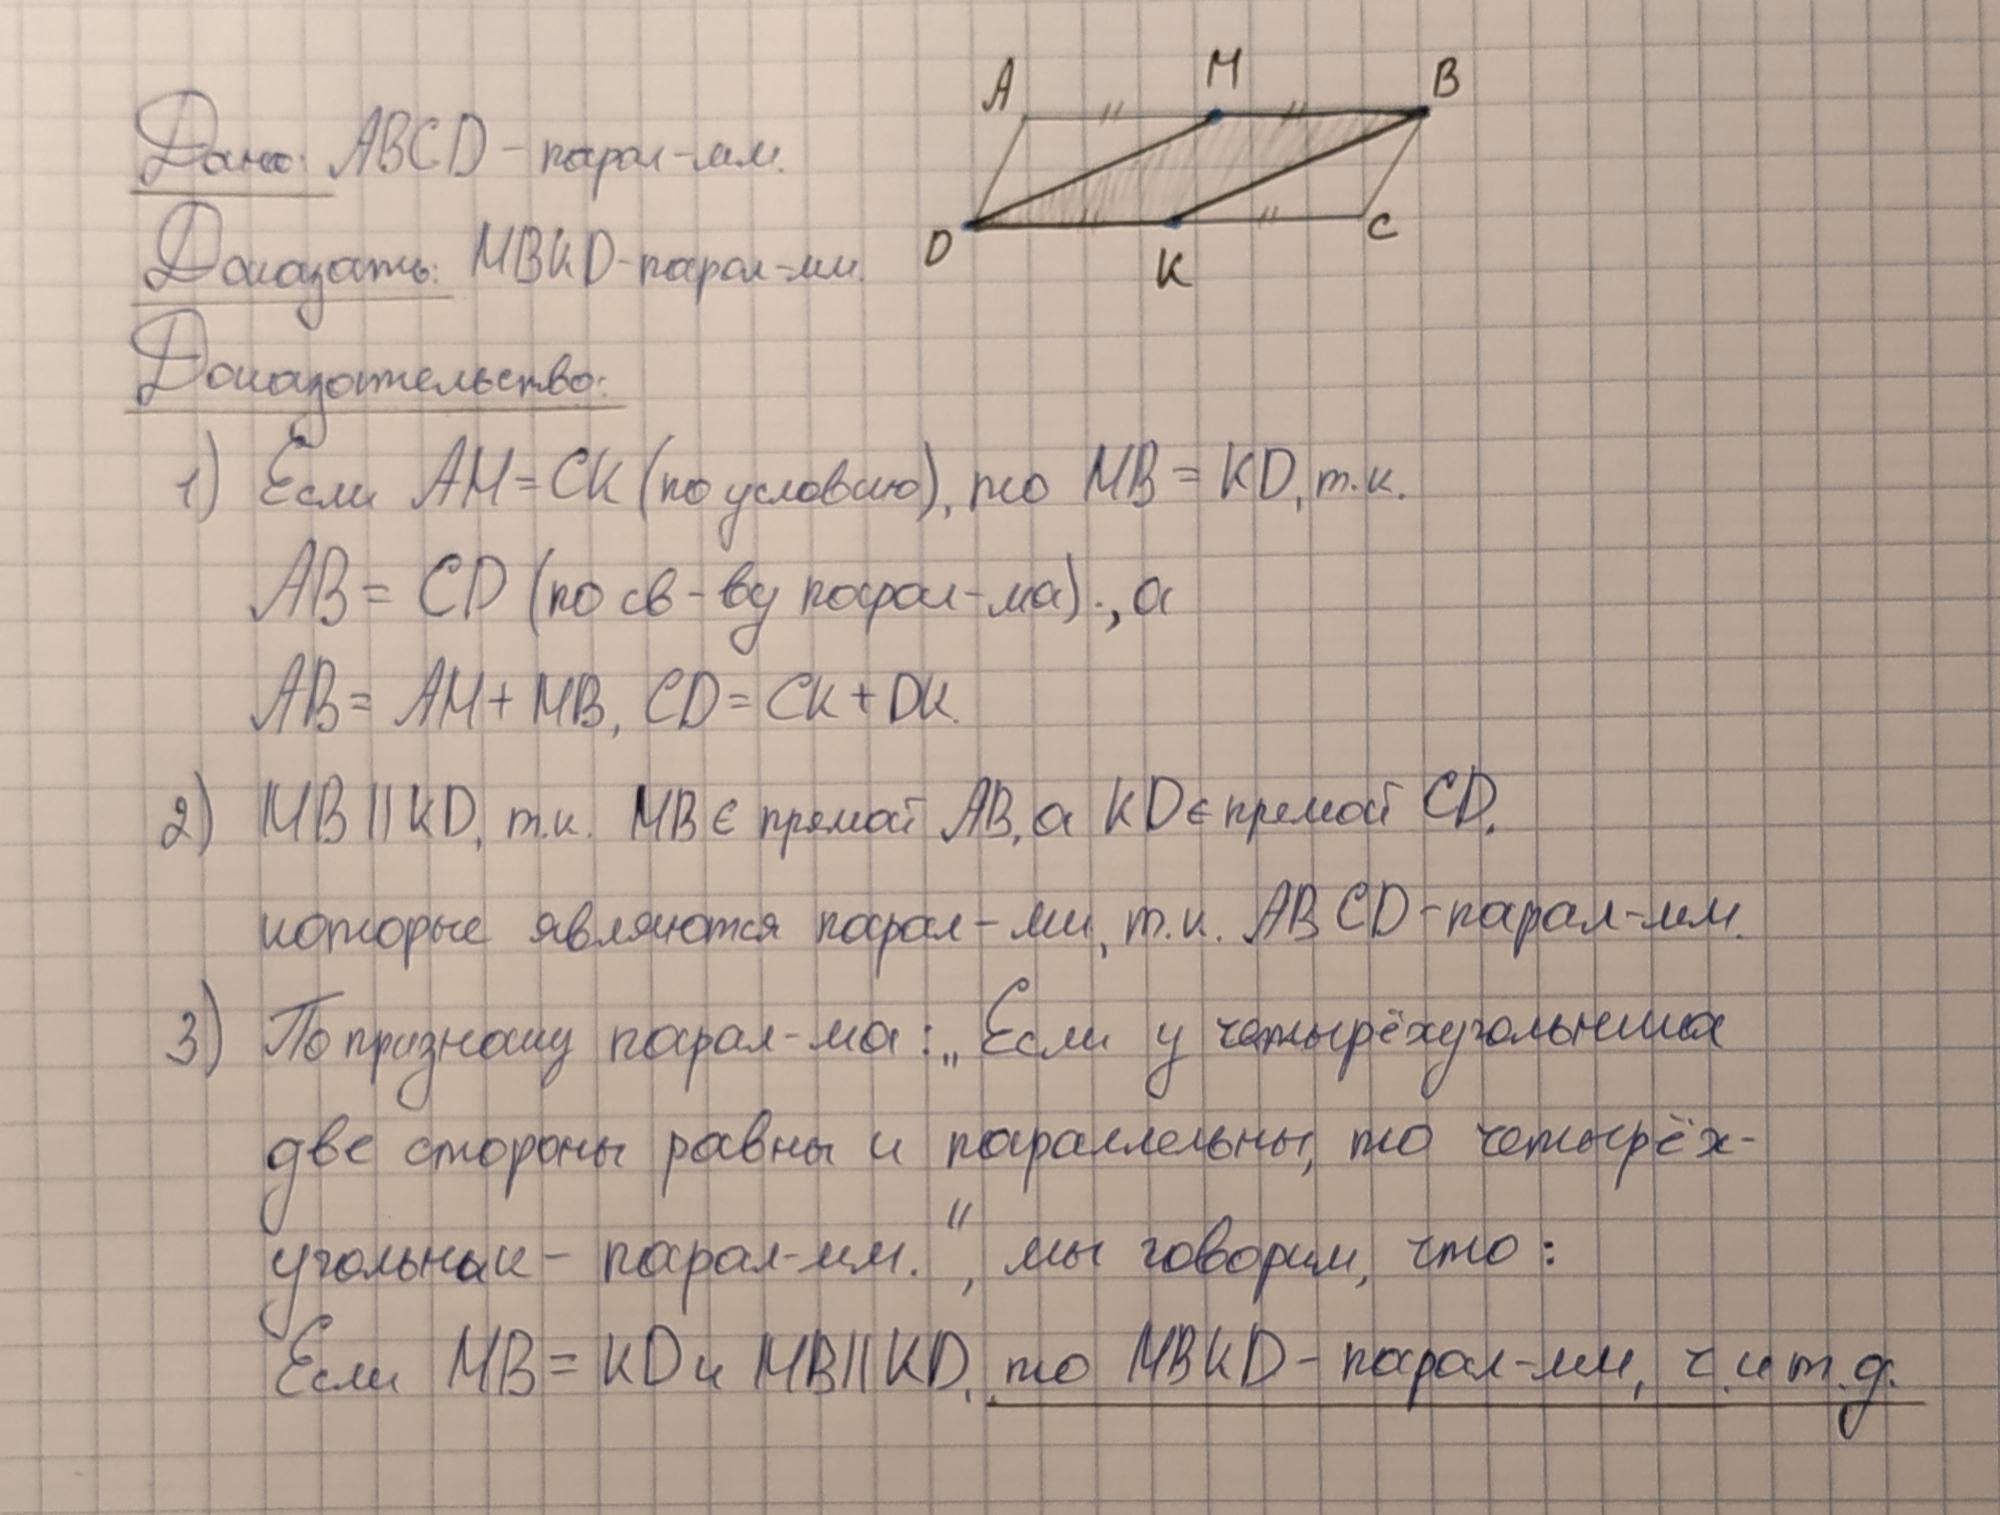 A M B
Дано: ABCD - парал-мм.
D K C
Доказать: MBKD - парал-мм.
Доказательство:
1) Если AM = CK (по условию), то MB = KD, т.к.
AB = CD (по св-ву парал-ма)., а
AB = AM + MB, CD = CK + DK.
2) MB || KD, т.к. MB ∈ прямой AB, а KD ∈ прямой CD,
которые являются парал-ми, т.к. ABCD - парал-мм.
3) По признаку парал-ма: „Если у четырёхугольника
две стороны равны и параллельны, то четырёх-
угольник - парал-мм.", мы говорим, что:
Если MB = KD и MB || KD, то MBKD - парал-мм, ч.и т.д.